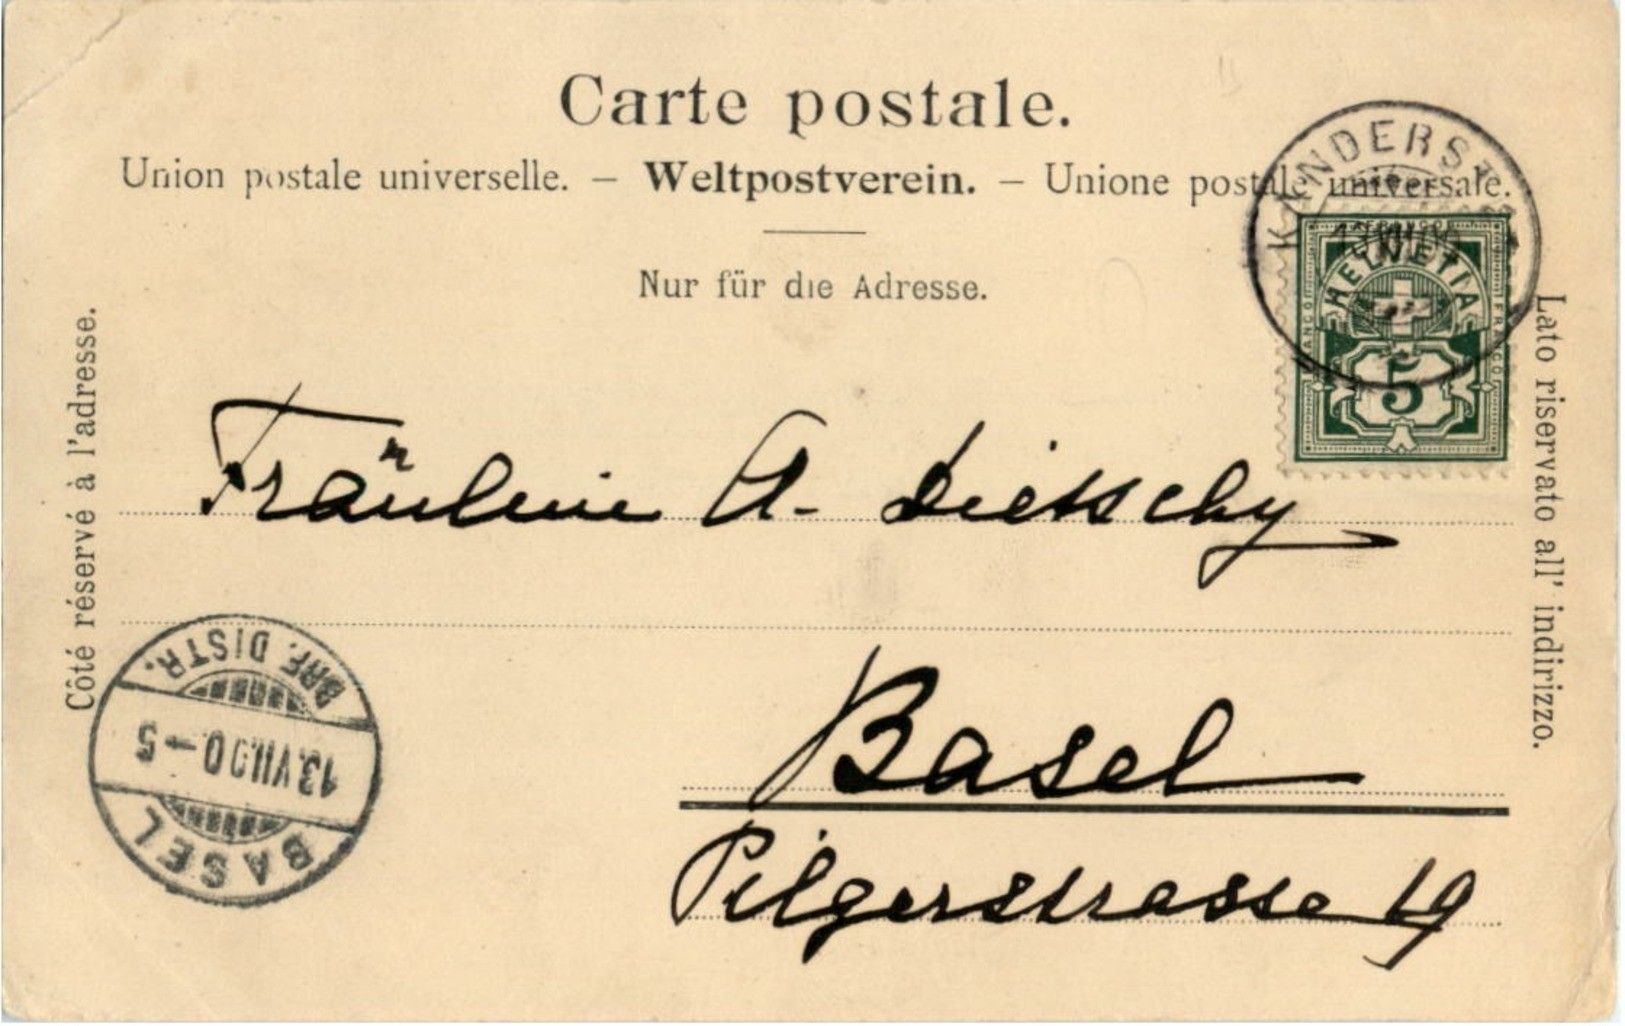 Carte postale.
Union postale universelle. – Weltpostverein. – Unione postale universale.
Nur für die Adresse.
Côté réservé à l'adresse.
Lato riservato all' indirizzo.
KINDERS
FRANCO
HELVETIA
FRANCO
FRANCO
5
Fräulein A. Dietschy
Basel
Pilgerstrasse 19
BRF. DISTR.
13.VII.00–5
BASEL